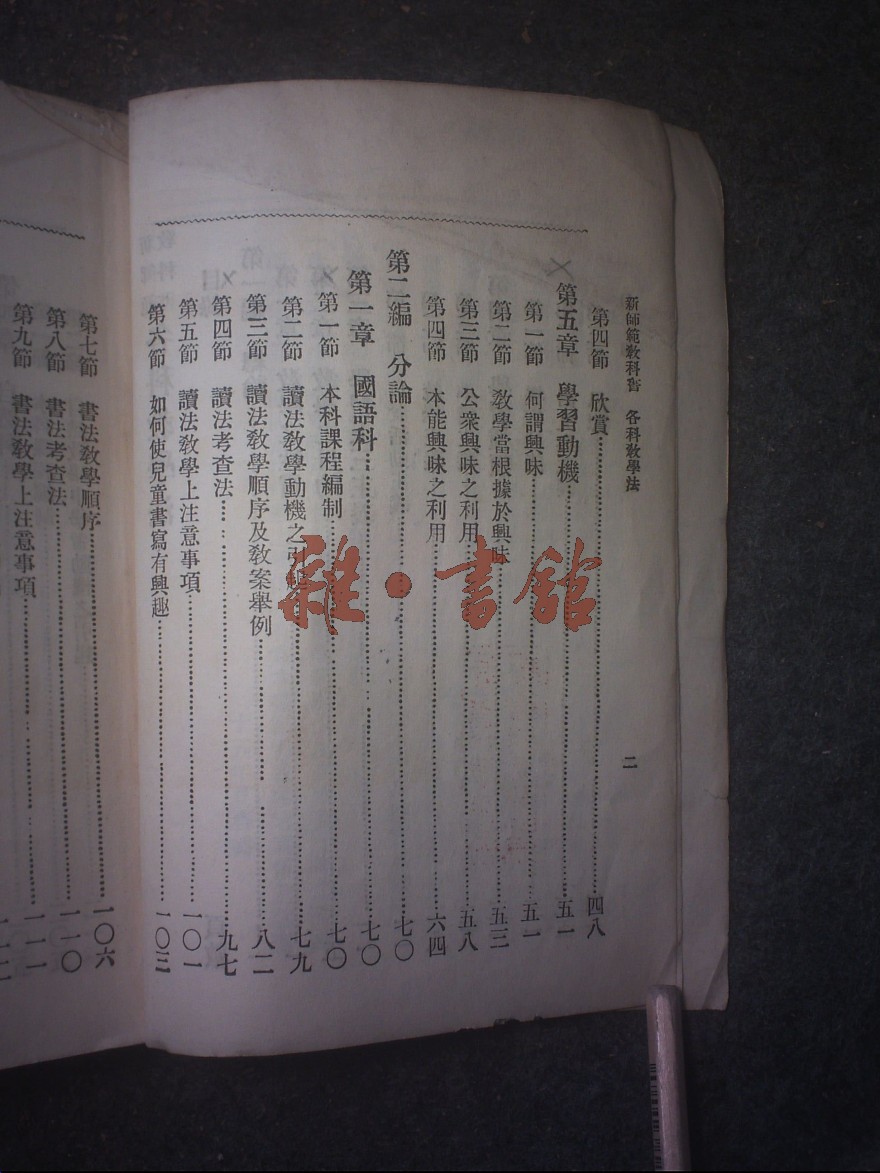 新師範教科書　各科教學法
二
第四節　欣賞…………四八
第五章　學習動機…………五一
第一節　何謂興味…………五一
第二節　教學當根據於興味…………五三
第三節　公衆興味之利用…………五八
第四節　本能興味之利用…………六四
第二編　分論…………七〇
第一章　國語科…………七〇
第一節　本科課程編制…………七〇
第二節　讀法教學動機之引起…………七九
第三節　讀法教學順序及教案舉例…………八二
第四節　讀法考查法…………九七
第五節　讀法教學上注意事項…………一〇一
第六節　如何使兒童書寫有興趣…………一〇三
第七節　書法教學順序…………一〇六
第八節　書法考查法…………一一〇
第九節　書法教學上注意事項…………一一一
雜·書館